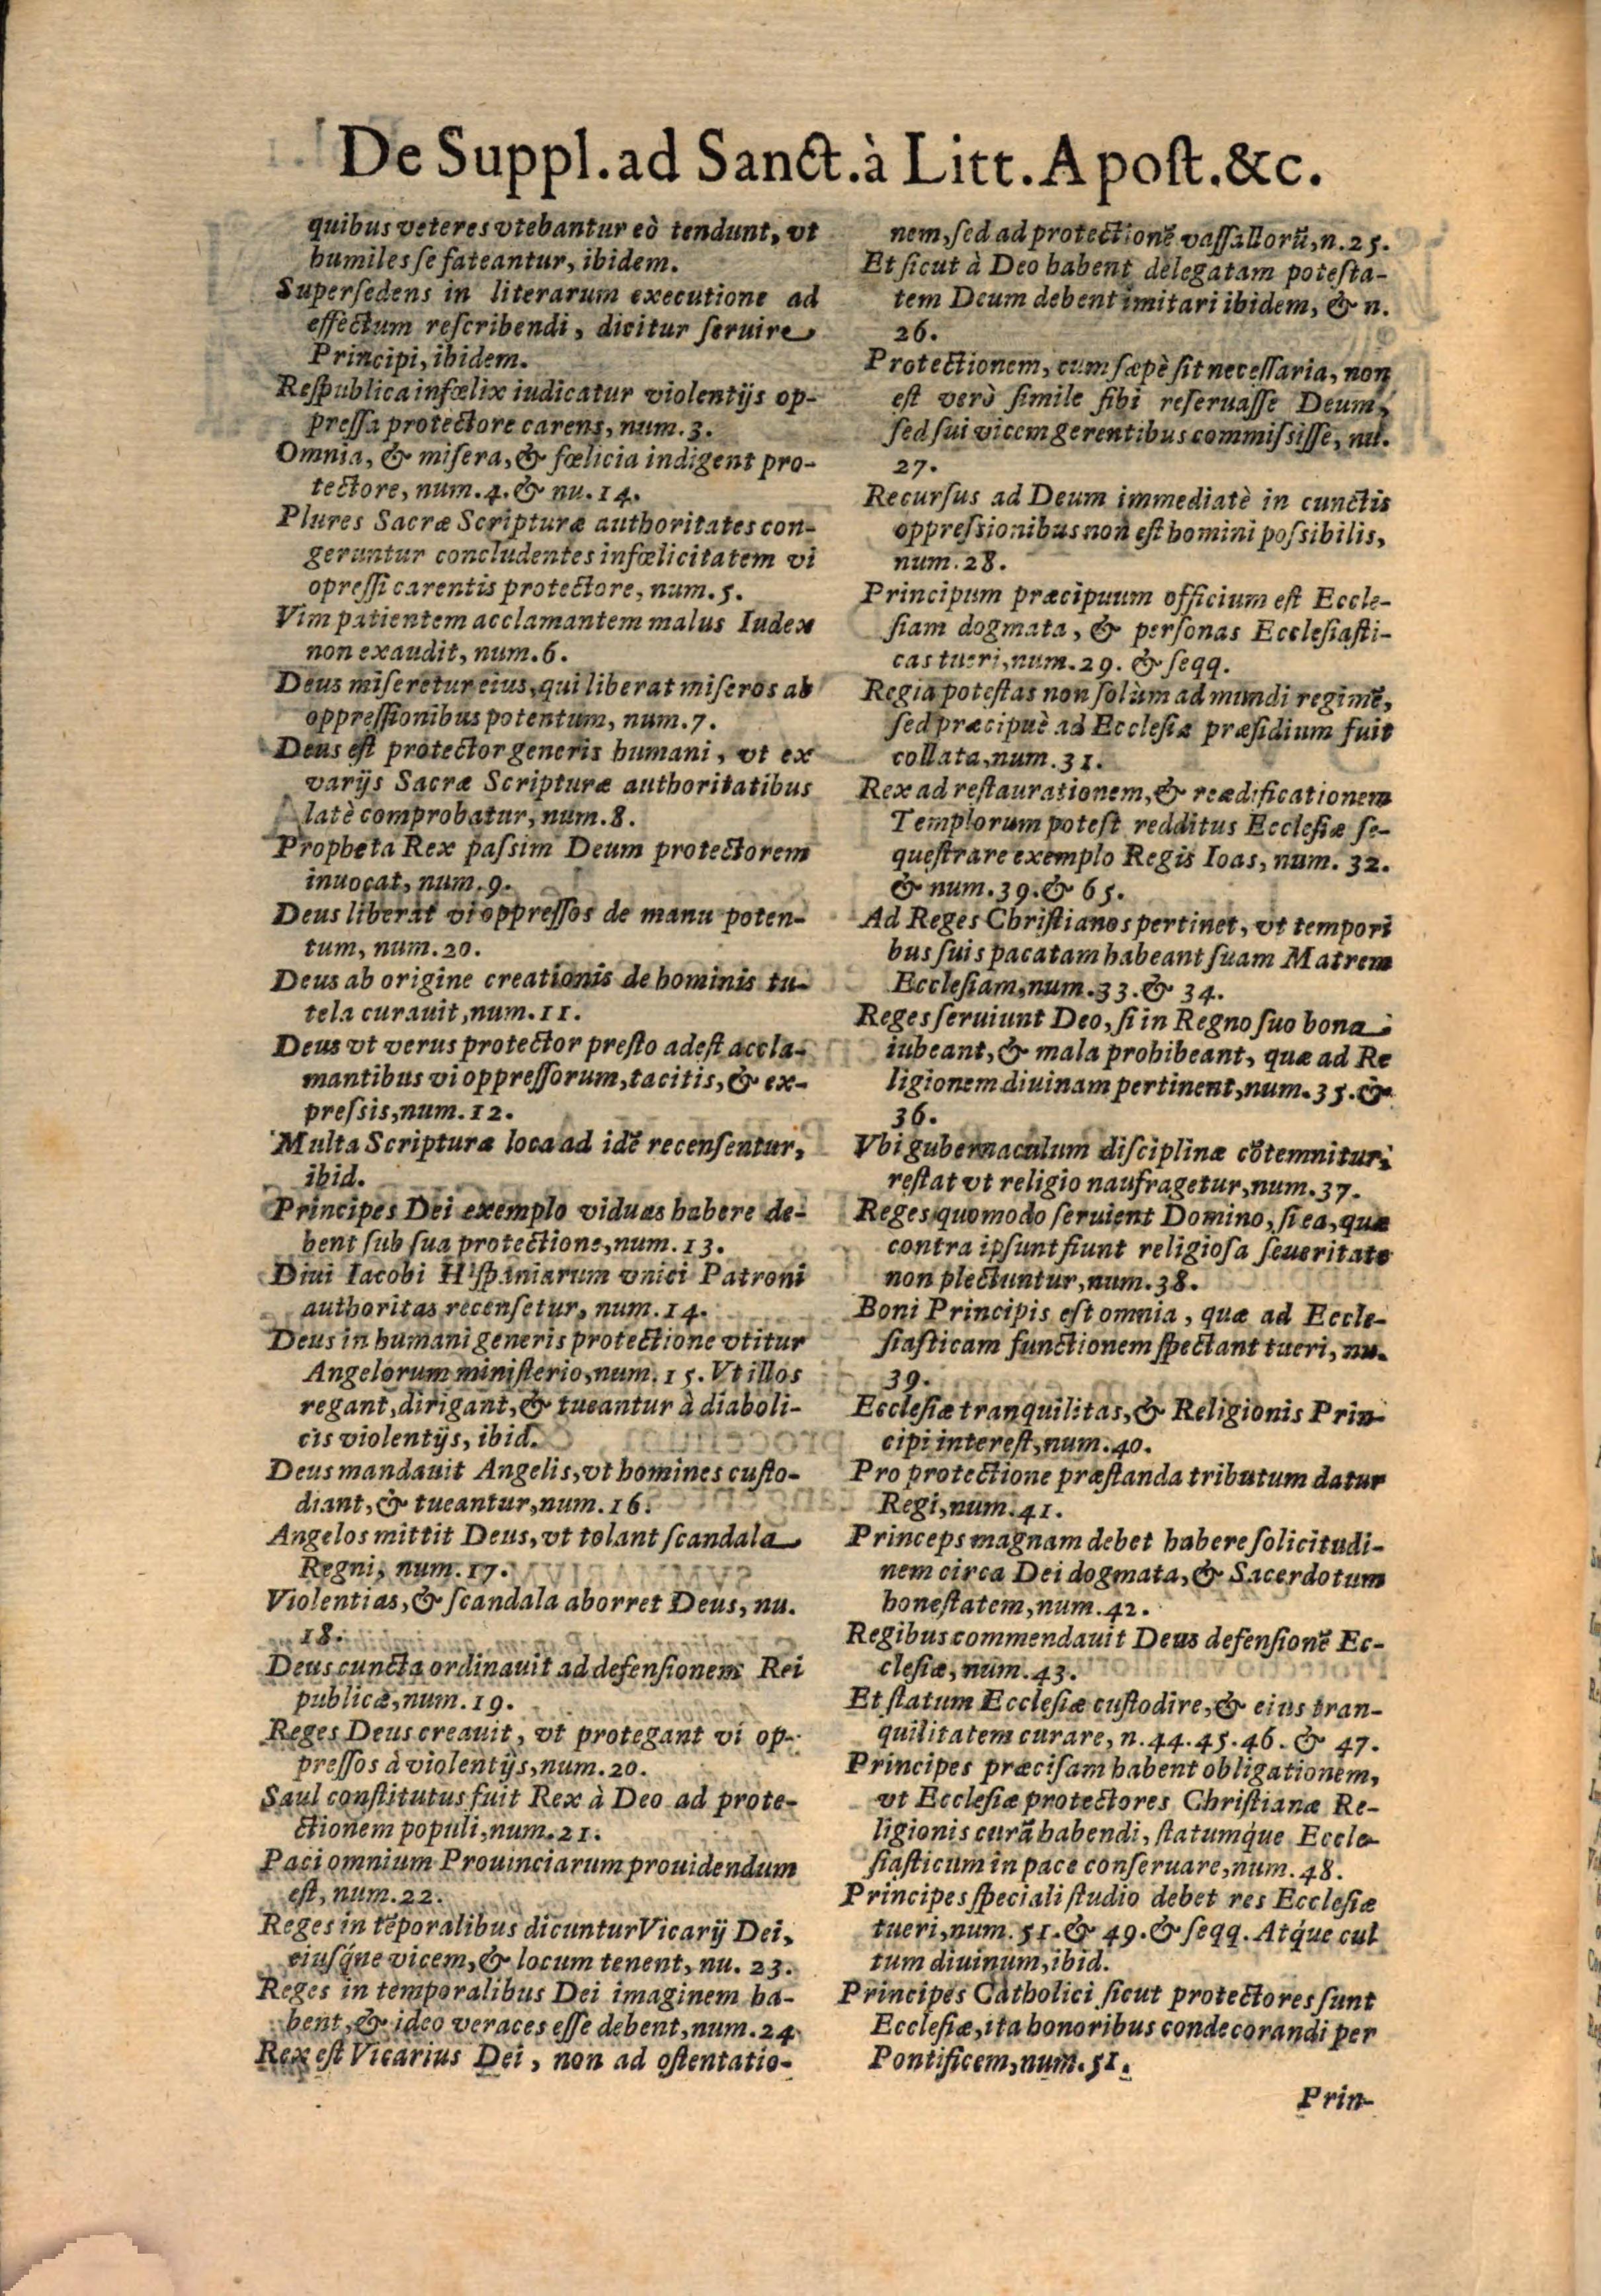 De Suppl. ad Sanct. à Litt. Apost. &c.
quibus veteres vtebantur eò tendunt, vt
humiles se fateantur, ibidem.
Supersedens in literarum executione ad
effectum rescribendi, dicitur seruire
Principi, ibidem.
Respublica infœlix iudicatur violentijs op-
pressa protectore carens, num. 3.
Omnia, & misera, & fœlicia indigent pro-
tectore, num. 4. & nu. 14.
Plures Sacræ Scripturæ authoritates con-
geruntur concludentes infœlicitatem vi
opressi carentis protectore, num. 5.
Vim patientem acclamantem malus Iudex
non exaudit, num. 6.
Deus miseretur eius, qui liberat miseros ab
oppressionibus potentum, num. 7.
Deus est protector generis humani, vt ex
varijs Sacræ Scripturæ authoritatibus
latè comprobatur, num. 8.
Propheta Rex passim Deum protectorem
inuocat, num. 9.
Deus liberat vi oppressos de manu poten-
tum, num. 20.
Deus ab origine creationis de hominis tu-
tela curauit, num. 11.
Deus vt verus protector presto adest accla-
mantibus vi oppressorum, tacitis, & ex-
pressis, num. 12.
Multa Scripturæ loca ad idẽ recensentur,
ibid.
Principes Dei exemplo viduas habere de-
bent sub sua protectione, num. 13.
Diui Iacobi Hispaniarum vnici Patroni
authoritas recensetur, num. 14.
Deus in humani generis protectione vtitur
Angelorum ministerio, num. 15. Vt illos
regant, dirigant, & tueantur à diaboli-
cis violentijs, ibid.
Deus mandauit Angelis, vt homines custo-
diant, & tueantur, num. 16.
Angelos mittit Deus, vt tolant scandala
Regni, num. 17.
Violentias, & scandala aborret Deus, nu.
18.
Deus cuncta ordinauit ad defensionem Rei
publicæ, num. 19.
Reges Deus creauit, vt protegant vi op-
pressos à violentijs, num. 20.
Saul constitutus fuit Rex à Deo ad prote-
ctionem populi, num. 21.
Paci omnium Prouinciarum prouidendum
est, num. 22.
Reges in tẽporalibus dicuntur Vicarij Dei,
eiusq́ne vicem, & locum tenent, nu. 23.
Reges in temporalibus Dei imaginem ha-
bent, & ideo veraces esse debent, num. 24
Rex est Vicarius Dei, non ad ostentatio-
nem, sed ad protectionẽ vassallorũ, n. 25.
Et sicut à Deo habent delegatam potesta-
tem Deum debent imitari ibidem, & n.
26.
Protectionem, cum sæpè sit necessaria, non
est verò simile sibi reseruasse Deum,
sed sui vicem gerentibus commississe, nu.
27.
Recursus ad Deum immediatè in cunctis
oppressionibus non est homini possibilis,
num. 28.
Principum præcipuum officium est Eccle-
siam dogmata, & personas Ecclesiasti-
cas tueri, num. 29. & seqq.
Regia potestas non solùm ad mundi regimẽ,
sed præcipuè ad Ecclesiæ præsidium fuit
collata, num. 31.
Rex ad restaurationem, & reædificationem
Templorum potest redditus Ecclesiæ se-
questrare exemplo Regis Ioas, num. 32.
& num. 39. & 65.
Ad Reges Christianos pertinet, vt tempori
bus suis pacatam habeant suam Matrem
Ecclesiam, num. 33. & 34.
Reges seruiunt Deo, si in Regno suo bona
iubeant, & mala prohibeant, quæ ad Re
ligionem diuinam pertinent, num. 35. &
36.
Vbi gubernaculum disciplinæ cõtemnitur,
restat vt religio naufragetur, num. 37.
Reges quomodo seruient Domino, si ea, quæ
contra ipsunt fiunt religiosa seueritate
non plectuntur, num. 38.
Boni Principis est omnia, quæ ad Eccle-
siasticam functionem spectant tueri, nu.
39.
Ecclesiæ tranquilitas, & Religionis Prin-
cipi interest, num. 40.
Pro protectione præstanda tributum datur
Regi, num. 41.
Princeps magnam debet habere solicitudi-
nem circa Dei dogmata, & Sacerdotum
honestatem, num. 42.
Regibus commendauit Deus defensionẽ Ec-
clesiæ, num. 43.
Et statum Ecclesiæ custodire, & eius tran-
quilitatem curare, n. 44. 45. 46. & 47.
Principes præcisam habent obligationem,
vt Ecclesiæ protectores Christianæ Re-
ligionis curã habendi, statumq́ue Eccle-
siasticum in pace conseruare, num. 48.
Principes speciali studio debet res Ecclesiæ
tueri, num. 51. & 49. & seqq. Atq́ue cul
tum diuinum, ibid.
Principes Catholici sicut protectores sunt
Ecclesiæ, ita honoribus condecorandi per
Pontificem, num. 51.
Prin-